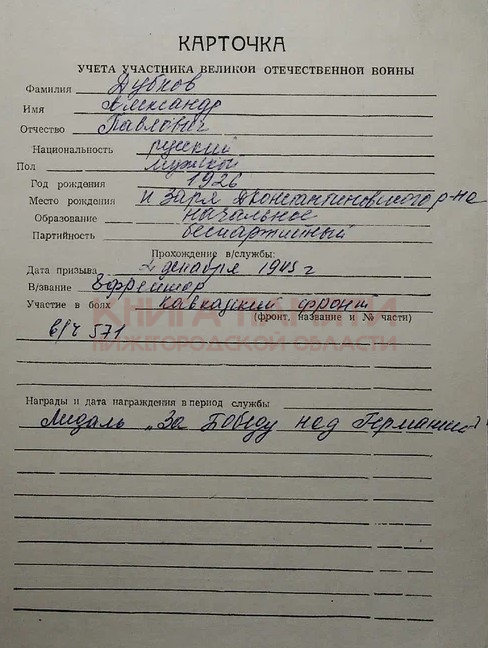 КАРТОЧКА
УЧЕТА УЧАСТНИКА ВЕЛИКОЙ ОТЕЧЕСТВЕННОЙ ВОЙНЫ
Фамилия Дубков
Имя Александр
Отчество Павлович
Национальность русский
Пол мужской
Год рождения 1926
Место рождения п Заря Дконстантиновского р-на
Образование начальное
Партийность беспартийный
Прохождение в/службы:
Дата призыва декабря
В/звание Ефрейтор
Участие в боях кавказкий фронт
(фронт, название и № части)
в/ч 571
КНИГА ПАМЯТИ
НИЖЕГОРОДСКОЙ ОБЛАСТИ
Награды и дата награждения в период службы
Медаль „За Победу над Германией"